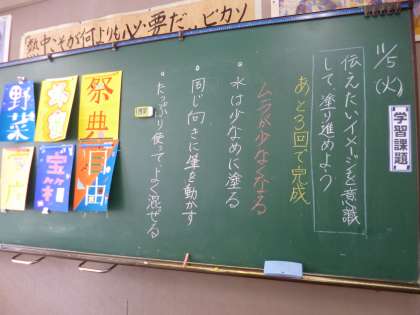 熱中こそが何よりも必要だ。ピカソ
11/5(火)
学習課題
伝えたいイメージを意識
して塗り進めよう
あと3回で完成
ムラが少なくなる
・水は少なめに塗る
・同じ向きに筆を動かす
・たっぷり使ってよく混ぜる
祭典
野菜
自由
宝笨